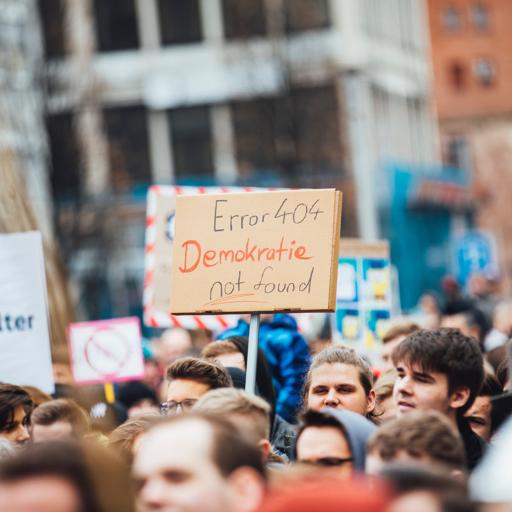 Error 404
Demokratie
not found
lter